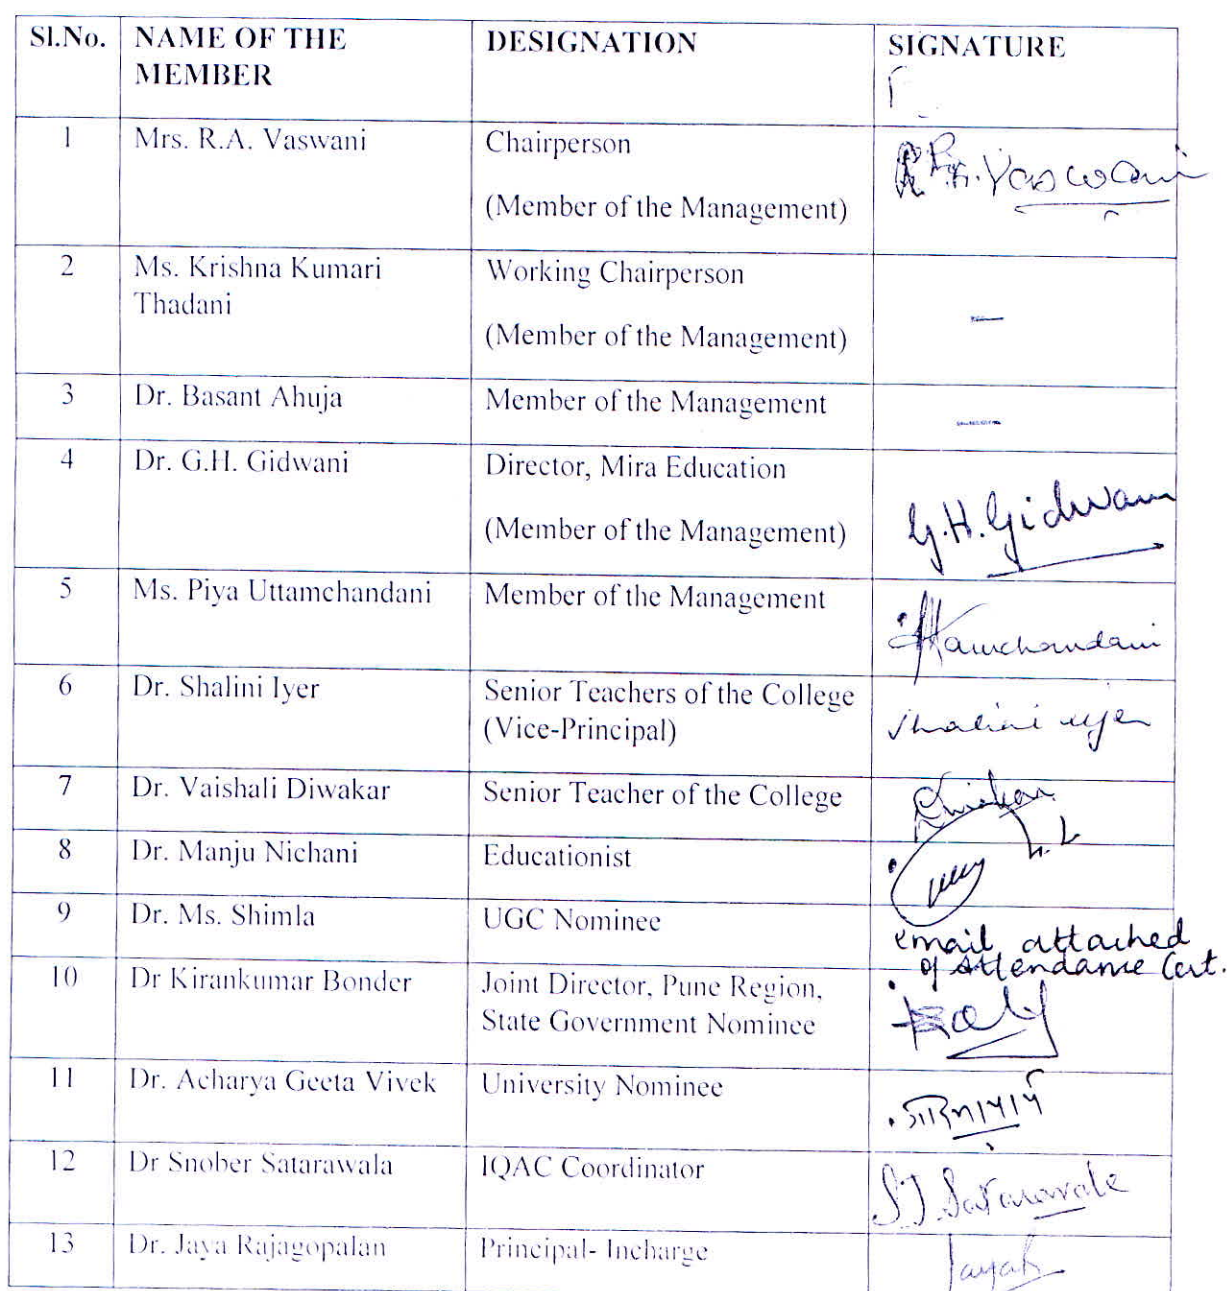 Sl.No. NAME OF THE DESIGNATION SIGNATURE
MEMBER
1 Mrs. R.A. Vaswani Chairperson Vaswani
(Member of the Management)
2 Ms. Krishna Kumari Working Chairperson
Thadani
(Member of the Management) —
3 Dr. Basant Ahuja Member of the Management —
4 Dr. G.H. Gidwani Director, Mira Education
(Member of the Management) G.H. Gidwani
5 Ms. Piya Uttamchandani Member of the Management
6 Dr. Shalini Iyer Senior Teachers of the College
(Vice-Principal) Shalini Iyer
7 Dr. Vaishali Diwakar Senior Teacher of the College
8 Dr. Manju Nichani Educationist
9 Dr. Ms. Shimla UGC Nominee email attached
of Attendance Cert.
10 Dr Kirankumar Bonder Joint Director, Pune Region,
State Government Nominee
11 Dr. Acharya Geeta Vivek University Nominee
12 Dr Snober Satarawala IQAC Coordinator S J Satarawala
13 Dr. Jaya Rajagopalan Principal- Incharge